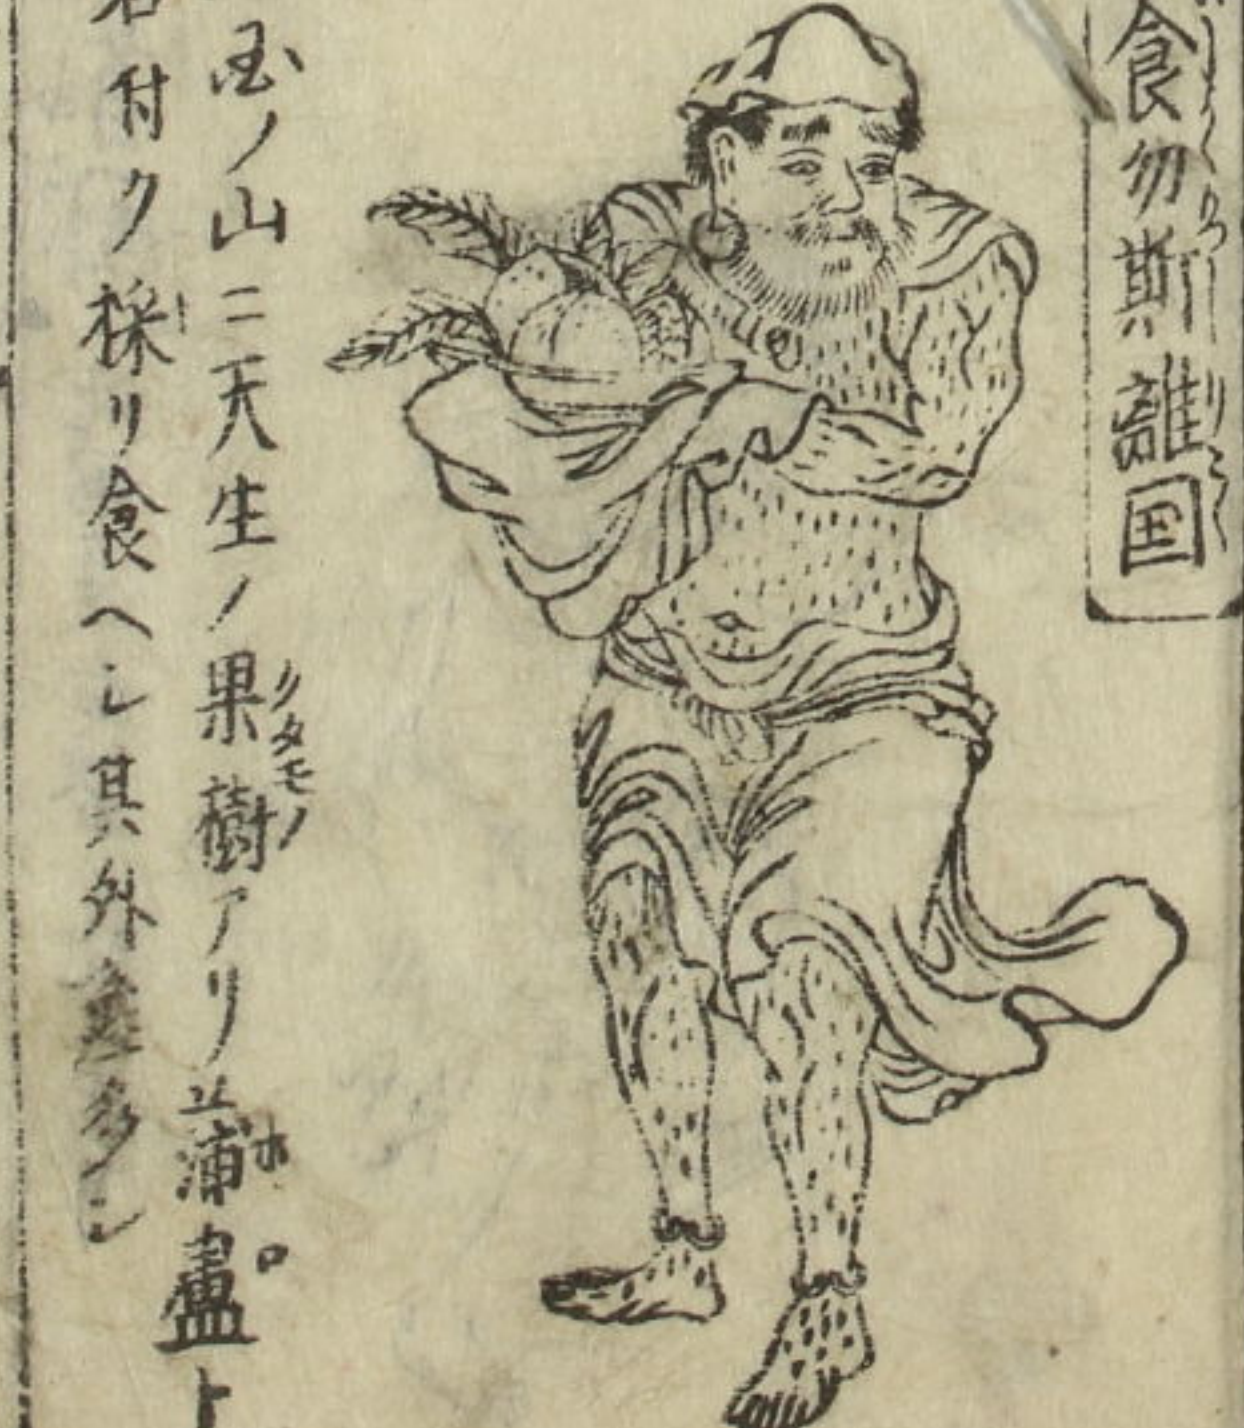 食勿斯離国
国ノ山ニ天生ノ果樹アリ 蒲盧ト
名付ク採リ食ヘシ其外 多シ